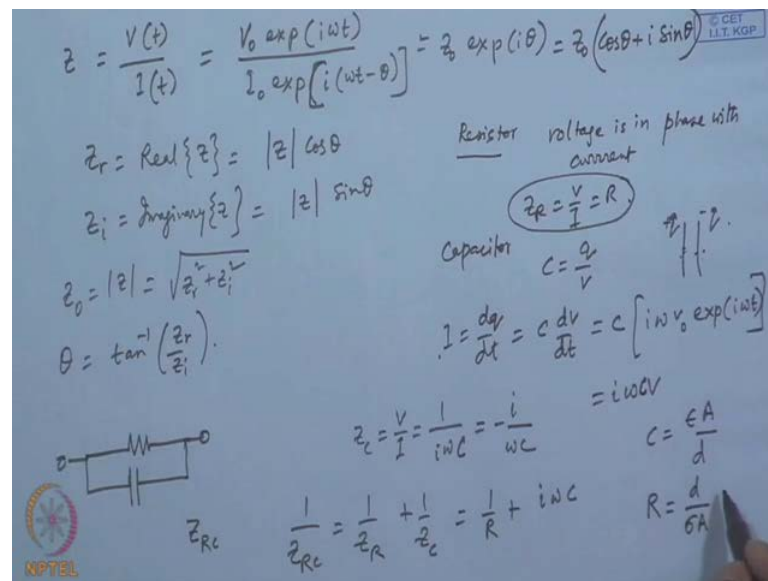 z = V(t)/I(t) = V₀ exp(iωt)/I₀ exp[i(ωt-θ)] = z₀ exp(iθ) = z₀(cosθ + i sinθ)
© CET
I.I.T. KGP
z_r = Real{z} = |z| cosθ
z_i = Imaginary{z} = |z| sinθ
z₀ = |z| = √(z_r² + z_i²)
θ = tan⁻¹(z_r/z_i).
Resistor voltage is in phase with
current
z_R = V/I = R
Capacitor C = q/V
+q -q.
I = dq/dt = C dv/dt = C[iω v₀ exp(iωt)]
= iωCV
z_c = V/I = 1/iωC = -i/ωC
C = ϵA/d
z_RC 1/z_RC = 1/z_R + 1/z_c = 1/R + iωC
R = d/σA
NPTEL